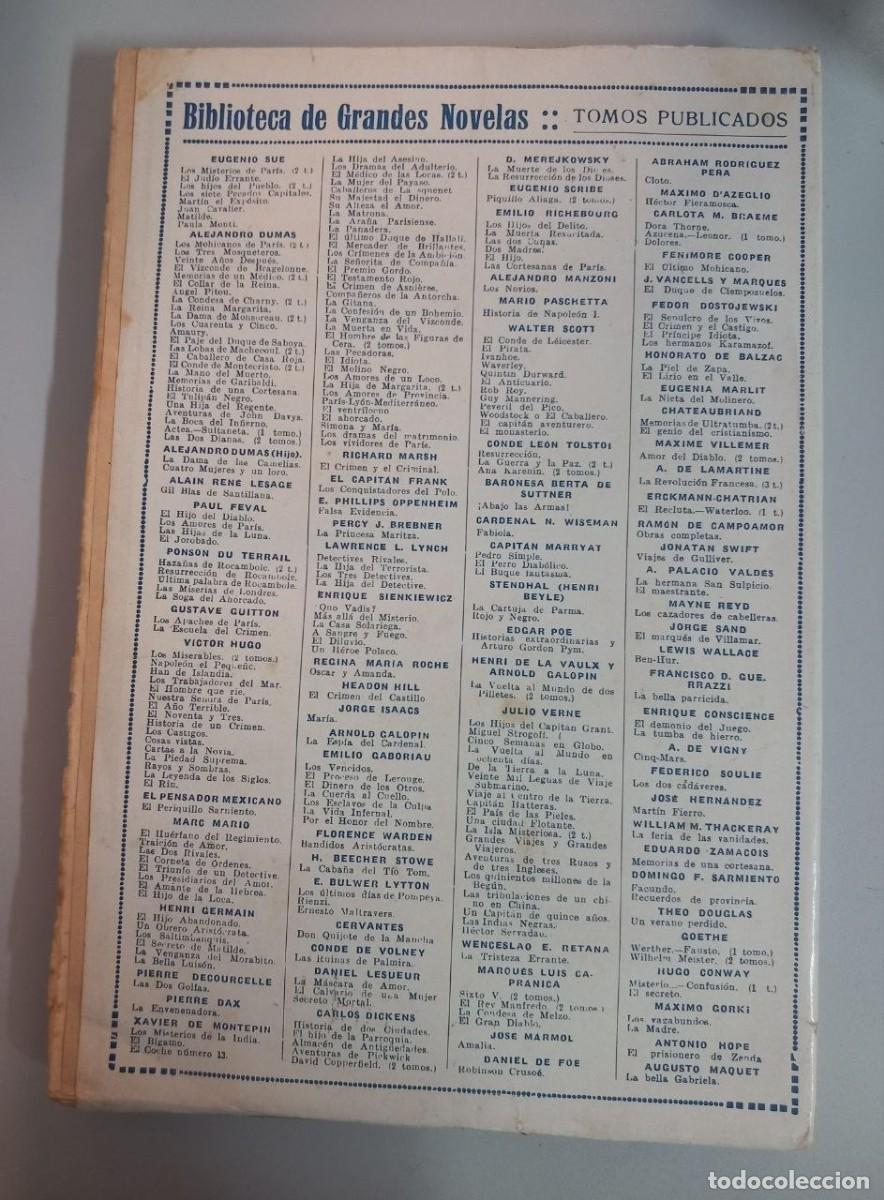 Biblioteca de Grandes Novelas :: TOMOS PUBLICADOS
EUGENIO SUE
Los Misterios de París. (2 t.)
El Judío Errante.
Los hijos del Pueblo. (2 t.)
Los siete Pecados Capitales.
Martín el Expósito.
Juan Cavalier.
Matilde.
Paula Monti.
ALEJANDRO DUMAS
Los Mohicanos de París. (2 t.)
Los Tres Mosqueteros.
Veinte Años Después.
El Vizconde de Bragelonne.
Memorias de un Médico. (2 t.)
El Collar de la Reina.
Angel Pitou.
La Condesa de Charny. (2 t.)
La Reina Margarita.
La Dama de Monsoreau. (2 t.)
Los Cuarenta y Cinco.
Amaury.
El Paje del Duque de Saboya.
Las Lobas de Machecoul. (2 t.)
El Caballero de Casa Roja.
El Conde de Montecristo. (2 t.)
La Mano del Muerto.
Memorias de Garibaldi.
Historia de una Cortesana.
El Tulipán Negro.
Una Hija del Regente.
Aventuras de John Davys.
La Boca del Infierno.
Actea.—Sultaneta. (1 tomo.)
Las Dos Dianas. (2 tomos.)
ALEJANDRO DUMAS (Hijo).
La Dama de las Camelias.
Cuatro Mujeres y un loro.
ALAIN RENÉ LESAGE
Gil Blas de Santillana.
PAUL FEVAL
El Hijo del Diablo.
Los Amores de París.
Las Hijas de la Luna.
El Jorobado.
PONSON DU TERRAIL
Hazañas de Rocambole. (2 t.)
Resurrección de Rocambole.
Última palabra de Rocambole.
Las Miserias de Londres.
La Soga del Ahorcado.
GUSTAVE GUITTON
Los Apaches de París.
La Escuela del Crimen.
VÍCTOR HUGO
Los Miserables. (2 tomos.)
Napoleón el Pequeño.
Han de Islandia.
Los Trabajadores del Mar.
El Hombre que ríe.
Nuestra Señora de París.
El Año Terrible.
El Noventa y Tres.
Historia de un Crimen.
Los Castigos.
Cosas vistas.
Cartas a la Novia.
La Piedad Suprema.
Rayos y Sombras.
La Leyenda de los Siglos.
El Rin.
EL PENSADOR MEXICANO
El Periquillo Sarniento.
MARC MARIO
El Huérfano del Regimiento.
Traición de Amor.
Las Dos Rivales.
El Corneta de Órdenes.
El Triunfo de un Detective.
Los Presidiarios del Amor.
El Amante de la Hebrea.
El Hijo de la Loca.
HENRI GERMAIN
El Hijo Abandonado.
Un Obrero Aristócrata.
Los Saltimbanquis.
El Secreto de Matilde.
La Venganza del Morabito.
La Bella Luisón.
PIERRE DECOURCELLE
Las Dos Golfas.
PIERRE DAX
La Envenenadora.
XAVIER DE MONTEPIN
Los Misterios de la India.
El Bígamo.
El Coche número 13.
La Hija del Asesino.
Los Dramas del Adulterio.
El Médico de las Locas. (2 t.)
La Mujer del Payaso.
Caballeros de La squenet
Su Majestad el Dinero.
Su Alteza el Amor.
La Matrona.
La Araña Parisiense.
La Panadera.
El último Duque de Hallali.
El Mercader de Brillantes.
Los Crímenes de la Ambición.
La Señorita de Compañía.
El Premio Gordo.
El Testamento Rojo.
El Crimen de Asnières.
Compañeros de la Antorcha.
La Gitana.
La Confesión de un Bohemio.
La Venganza del Vizconde.
La Muerta en Vida.
El Hombre de las Figuras de
Cera. (2 tomos.)
Las Pecadoras.
El Idiota.
El Molino Negro.
Los Amores de un Loco.
La Hija de Margarita. (2 t.)
Los Amores de Provincia.
París-Lyón-Mediterráneo.
El ventrílocuo
El ahorcado.
Simona y María.
Los dramas del matrimonio.
Los vividores de París.
RICHARD MARSH
El Crimen y el Criminal.
EL CAPITÁN FRANK
Los Conquistadores del Polo.
E. PHILLIPS OPPENHEIM
Falsa Evidencia.
PERCY J. BREBNER
La Princesa Maritza.
LAWRENCE L. LYNCH
Detectives Rivales.
La Hija del Terrorista.
Los Tres Detectives.
La Hija del Detective.
ENRIQUE SIENKIEWICZ
¿Quo Vadis?
Más allá del Misterio.
La Casa Solariega.
A Sangre y Fuego.
El Diluvio.
Un Héroe Polaco.
REGINA MARÍA ROCHE
Oscar y Amanda.
HEADON HILL
El Crimen del Castillo
JORGE ISAACS
María.
ARNOLD GALOPIN
La Espía del Cardenal.
EMILIO GABORIAU
Los Vencidos.
El Proceso de Lerouge.
El Dinero de los Otros.
La Cuerda al Cuello.
Los Esclavos de la Culpa
La Vida Infernal.
Por el Honor del Nombre.
FLORENCE WARDEN
Bandidos Aristócratas.
H. BEECHER STOWE
La Cabaña del Tío Tom.
E. BULWER LYTTON
Los últimos días de Pompeya.
Rienzi.
Ernesto Maltravers.
CERVANTES
Don Quijote de la Mancha
CONDE DE VOLNEY
Las Ruinas de Palmira.
DANIEL LESUEUR
La Máscara de Amor.
El Calvario de una Mujer
Secreto Mortal.
CARLOS DICKENS
Historia de dos Ciudades.
El hijo de la Parroquia.
Almacén de Antigüedades.
Aventuras de Pickwick
David Copperfield. (2 tomos.)
D. MEREJKOWSKY
La Muerte de los Dioses.
La Resurrección de los Dioses.
EUGENIO SCRIBE
Piquillo Aliaga. (2 tomos.)
EMILIO RICHEBOURG
Los Hijos del Delito.
La Muerta Resucitada.
Las dos Cunas.
Dos Madres.
El Hijo.
Las Cortesanas de París.
ALEJANDRO MANZONI
Los Novios.
MARIO PASCHETTA
Historia de Napoleón I.
WALTER SCOTT
El Conde de Léicester.
El Pirata.
Ivanhoe.
Waverley.
Quintín Durward.
El Anticuario.
Rob Roy.
Guy Mannering.
Peveril del Pico.
Woodstock o El Caballero.
El capitán aventurero.
El monasterio.
CONDE LEÓN TOLSTOI
Resurrección.
La Guerra y la Paz. (2 t.)
Ana Karenin. (2 tomos.)
BARONESA BERTA DE
SUTTNER
¡Abajo las Armas!
CARDENAL N. WISEMAN
Fabiola.
CAPITÁN MARRYAT
Pedro Simple.
El Perro Diabólico.
El Buque fantasma.
STENDHAL (HENRI
BEYLE)
La Cartuja de Parma.
Rojo y Negro.
EDGAR POE
Historias extraordinarias y
Arturo Gordon Pym.
HENRI DE LA VAULX Y
ARNOLD GALOPIN
La Vuelta al Mundo de dos
Pilletes. (2 tomos.)
JULIO VERNE
Los Hijos del Capitán Grant.
Miguel Strogoff. (
Cinco Semanas en Globo.
La Vuelta al Mundo en
ochenta días.
De la Tierra a la Luna.
Veinte Mil Leguas de Viaje
Submarino.
Viaje al Centro de la Tierra.
Capitán Hatteras.
El País de las Pieles.
Una ciudad Flotante.
La Isla Misteriosa. (2 t.)
Grandes Viajes y Grandes
Viajeros.
Aventuras de tres Rusos y
de tres Ingleses.
Los quinientos millones de la
Begún.
Las tribulaciones de un chi-
no en China.
Un Capitán de quince años.
Las Indias Negras.
Héctor Servadac.
WENCESLAO E. RETANA
La Tristeza Errante.
MARQUÉS LUIS CA-
PRANICA
Sixto V. (2 tomos.)
El Rey Manfredo. (2 tomos.)
La Condesa de Melzo.
El Gran Diablo.
JOSE MARMOL
Amalia.
DANIEL DE FOE
Robinson Crusoé.
ABRAHAM RODRÍGUEZ
PEÑA
Cloto.
MAXIMO D'AZEGLIO
Héctor Fieramosca.
CARLOTA M. BRAEME
Dora Thorne.
Azucena.—Leonor. (1 tomo.)
Dolores.
FENIMORE COOPER
El Último Mohicano.
J. VANCELLS Y MARQUES
El Duque de Ciempozuelos.
FEDOR DOSTOJEWSKI
El Sepulcro de los Vivos.
El Crimen y el Castigo.
El Príncipe Idiota.
Los hermanos Karamazof.
HONORATO DE BALZAC
La Piel de Zapa.
El Lirio en el Valle.
EUGENIA MARLIT
La Nieta del Molinero.
CHATEAUBRIAND
Memorias de Ultratumba. (2 t.)
El genio del cristianismo.
MAXIME VILLEMER
Amor del Diablo. (2 tomos.)
A. DE LAMARTINE
La Revolución Francesa. (3 t.)
ERCKMANN-CHATRIAN
El Recluta.—Waterloo. (1 t.)
RAMÓN DE CAMPOAMOR
Obras completas.
JONATAN SWIFT
Viajes de Gulliver.
A. PALACIO VALDÉS
La hermana San Sulpicio.
El maestrante.
MAYNE REYD
Los cazadores de cabelleras.
JORGE SAND
El marqués de Villamar.
LEWIS WALLACE
Ben-Hur.
FRANCISCO D. GUE.
RRAZZI
La bella parricida.
ENRIQUE CONSCIENCE
El demonio del Juego.
La tumba de hierro.
A. DE VIGNY
Cinq-Mars.
FEDERICO SOULIE
Los dos cadáveres.
JOSÉ HERNANDEZ
Martín Fierro.
WILLIAM M. THACKERAY
La feria de las vanidades.
EDUARDO ZAMACOIS
Memorias de una cortesana.
DOMINGO F. SARMIENTO
Facundo.
Recuerdos de provincia.
THEO DOUGLAS
Un verano perdido.
GOETHE
Werther.—Fausto. (1 tomo.)
Wilhelm Meister. (2 tomos.)
HUGO CONWAY
Misterio.—Confusión. (1 t.)
El secreto.
MAXIMO GORKI
Los vagabundos.
La Madre.
ANTONIO HOPE
El prisionero de Zenda
AUGUSTO MAQUET
La bella Gabriela.
todocoleccion